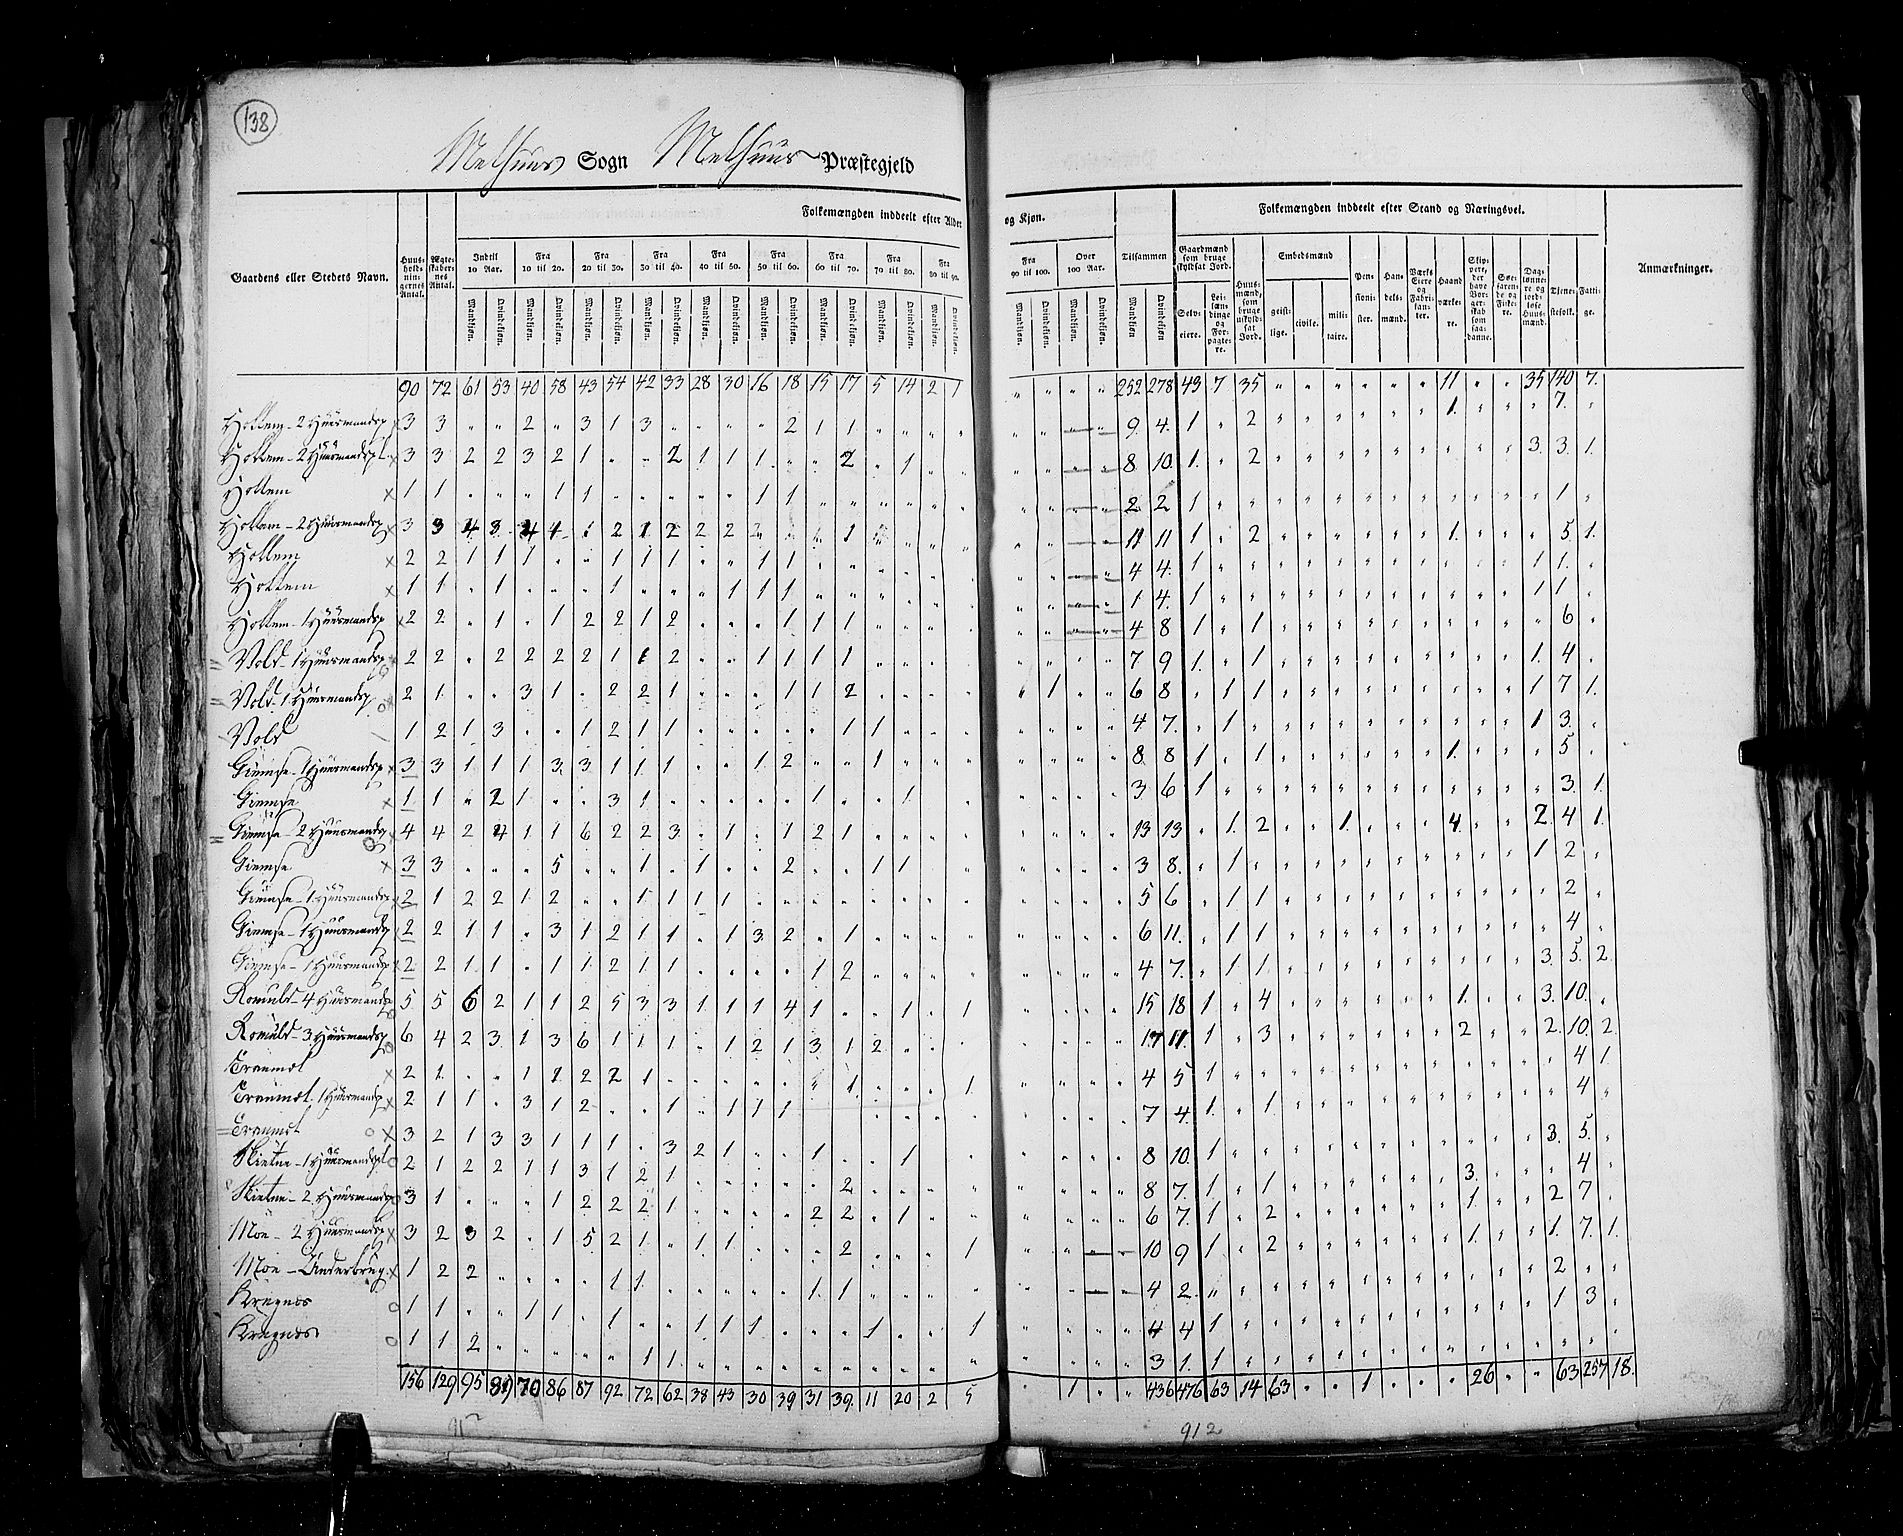 138
Melhuus Sogn Melhuus Præstegjeld
Gaardens eller Steders Navn.
Huusholdningernes Antal.
Ægteskabernes Antal.
Folkemængden inddeelt efter Alder og Kjøn.
Indtil 10 Aar.
Fra 10 til 20.
Fra 20 til 30.
Fra 30 til 40.
Fra 40 til 50.
Fra 50 til 60.
Fra 60 til 70.
Fra 70 til 80.
Fra 80 til 90.
Fra 90 til 100.
Over 100 Aar.
Tilsammen
Mandkjøn. Qvindekjøn.
Folkemængden inddeelt efter Stand og Næringsvei.
Gaardmænd som bruge skyldsat Jord.
Selveiere.
Leilændinge og Forpagtere.
Huusmænd, som bruge uskyldsat Jord.
Embedsmænd
geistlige. civile. militaire.
Pensionister.
Handelsmænd.
Værks Eiere og Fabrikanter.
Haandværkere.
Skippere, der have Borgerskab som saadanne.
Søefarende og Fiskere.
Daglønnere og jordløse Huusmænd.
Tjenestefolk.
Fattige.
Anmærkninger.
90 72 61 53 40 58 43 54 42 33 28 30 16 18 15 17 5 14 2 1 " " " " 252 278 49 7 35 " " " " " " 11 " " 35 140 7.
Hollem - 2 Huusmandsp 3 3 " " 2 " 3 1 3 " " " " 2 1 1 " " " " 9 4 1 " 2 1. 7. "
Hollem - 2 Huusmandspl 3 3 2 2 3 2 1 " " 2 1 1 1 " " 2 " 1 " " 8 10 1. " 2 3. 3. 1.
Hollem 1 1 " " " 1 1 " " " " " 1 1 " " " " " " 2 2 1 1 "
Hollem - 2 Huusmandsp 3 3 4 3 4 1 1 2 1 2 2 2 1 11 11 1 " 2 1. 5. 1.
Hollem 2 2 1 1 1 " " 1 1 1 " " 1 1 " " " " " " 4 4. 1 1 1. "
Hollem 1 1 " 1 " " " 1 " " " 1 1 1 " " " " " " 1 4. 1 1 1 "
Hollem - 1 Huusmandsp 2 2 " 1 " 1 2 2 1 2 " " " 1 1 1 " " " " 4 8 1 " 1 6 "
Vold - 1 Huusmandsp 2 2 " 2 2 2 2 1 1 2 " " 1 1 1 1 " " " " 7 9 1. " 1 1. 4 "
Vold - 1 Huusmandsp 2 1 " " 3 1 " 2 2 1 " " " 1 1 2 " " " " " 1 " " 6 8 " 1 1 1 7 1.
Vold 1 2 1 3 " " 1 2 1 1 " " " " " 1 1 " " " 4 7. " 1 1 3. "
Giemse - 1 Huusmandsp 3 3 1 1 1 3 3 1 1 1 " " 1 2 " " 1 " " " 8 8 1 " 1 1. 5 "
Giemse 1 1 " 2 1 " " 3 1 " " " " " 1 " " 1 " " 3 6 1 3. 1.
Giemse 2 Huusmandsp 4 4 2 4 1 1 6 2 2 3 " 1 " 1 2 1 " " " " 13 13 " 1. 2 1. 4 2 4 1.
Giemse 3 3 " " " 5 " " 1 " 1 " " 2 " " 1 1 " " 3 8. " 1 1 2 "
Giemse - 1 Huusmandsp 2 1 2 2 1 2 " " 1 1 1 1 " " " " " " " " 5 6 " 1 1 2 "
Giemse - 1 Huusmandsp 2 2 1 1 " 3 1 2 1 1 " 1 3 2 " 1 " " " " 6 11. " 1 1 4 "
Giemse - 1 Huusmandsp 2 2 1 1 " 1 1 2 1 1 " " " " 1 2 " " " " 4 7. " 1 1 3. 5. 2
Romuld - 4 Huusmandsp 5 5 6 2 1 1 2 5 3 3 1 1 1 4 1 " " 1 " 1 15 18 1 " 4 1. 3. 10. "
Romuld - 3 Huusmandsp 6 4 2 3 1 3 6 1 1 1 " 1 2 1 3 1 2 " " " 17 11 1 " 3 2 2. 10. 2
Tranmæl 2 1 " " 1 1 2 2 1 " " " " " " 1 " " " 1 4 5 1 4 1
Tranmæl. 1 Huusmandsp 2 1 1 " 3 1 2 " " 1 " 1 1 1 " " " " " " 7 4. 1. " 1. 4 "
Tranmæl 3 2 1 3 3 1 1 1 " 3 2 1 " " 1 " " 1 " " 8 10 1 3. 5. "
Skietne - 1 Huusmandspl 2 1 2 2 1 1 3 1 2 1 " " " " " 2 " " " " 8 7. 1 " 1 3. 4 "
Skietne - 2 Huusmandsp 3 1 " " " 1 2 2 2 1 " " " " 2 2 " 1 " " 6 7. 1 " 2 1. 2 7 "
Moe - 2 Huusmandsp 3 2 3 2 " 1 5 2 1 " 1 1 " " " 2 " " " 1 10 9 1 " 2 1. 1. 7. 1.
Moe - Underbrug. 1 2 2 " " " " 1 1 " " " " " 1 1 " " " " 4 2 " 2 "
Kregnes 1 1 " " 1 1 " 1 " " 1 1 1 " " " 1 " " 1 4 4 1 1 3 "
Kregnes 1 1 2 " " " " " 1 1 " " " " " " " " " " 3 1. 1 "
156 129 95 89 70 86 87 92 72 62 38 43 30 39 31 39. 11 20 2 5 " 1 " " 436 476 63 14 63 " " 1 " " " 26 " " 63 257 18.
912
912